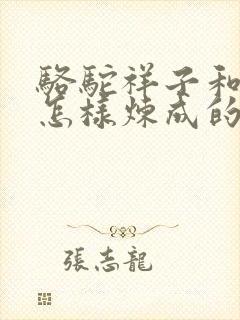 駱駝祥子和
怎樣煉成的
張志龍